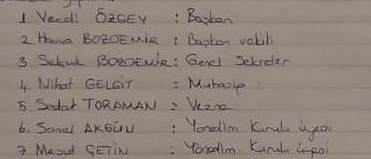 1 Vecdi ÖZGEY : Başkan
2 Havva BOZDEMİR : Başkan vekili
3 Selçuk BOZDEMİR : Genel Sekreter
4. Nihat GELGİT : Muhasip
5 Sedat TORAMAN : Vezne
6. Sonel AKGÜN : Yönetim Kurulu üyesi
7 Mesut ÇETİN : Yönetim Kurulu üyesi